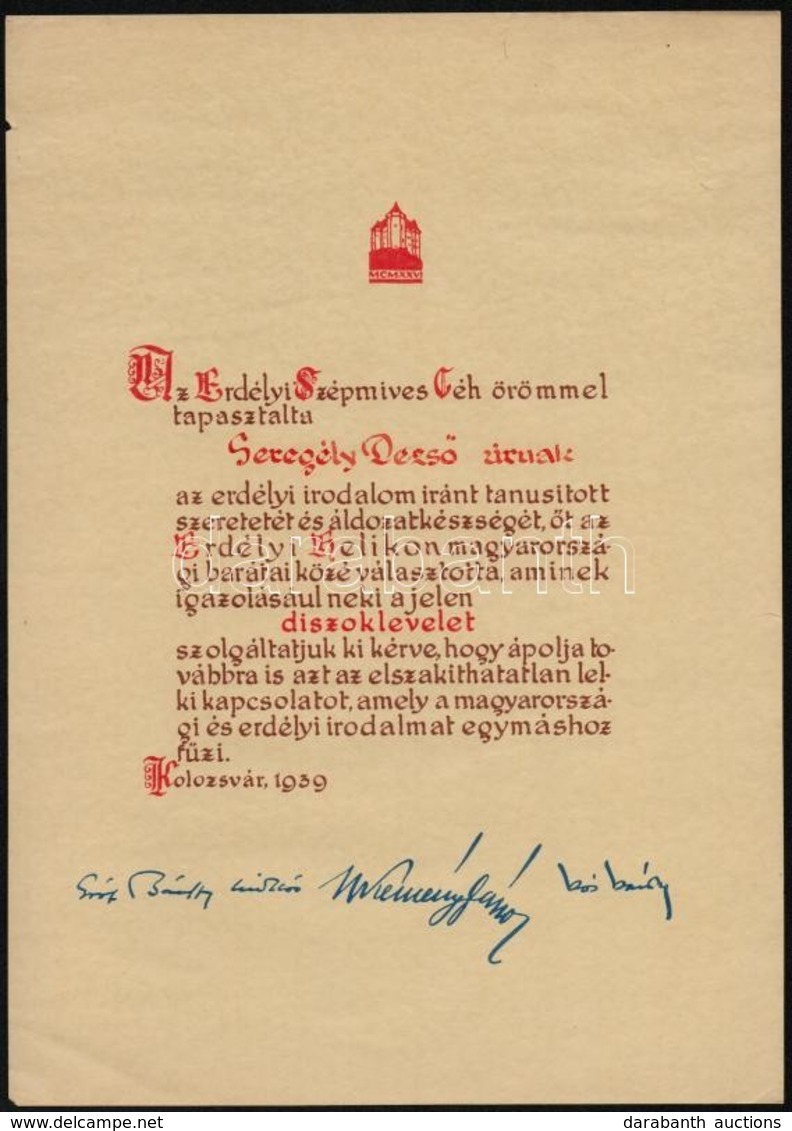 MCMXXVI
Az Erdélyi Szépmives Céh örömmel
tapasztalta
Seregély Dezső úrnak
az erdélyi irodalom iránt tanusitott
szeretetét és áldozatkészségét, őt az
Erdélyi Helikon magyarorszá-
gi barátai közé választotta, aminek
igazolásául neki a jelen
diszoklevelet
szolgáltatjuk ki kérve, hogy ápolja to-
vábbra is azt az elszakithatatlan lel-
ki kapcsolatot, amely a magyarorszá-
gi és erdélyi irodalmat egymáshoz
fűzi.
Kolozsvár, 1939
Gróf Bánffy Miklós Kemény János Kós Károly
darabanth
www.delcampe.net
darabanth auctions